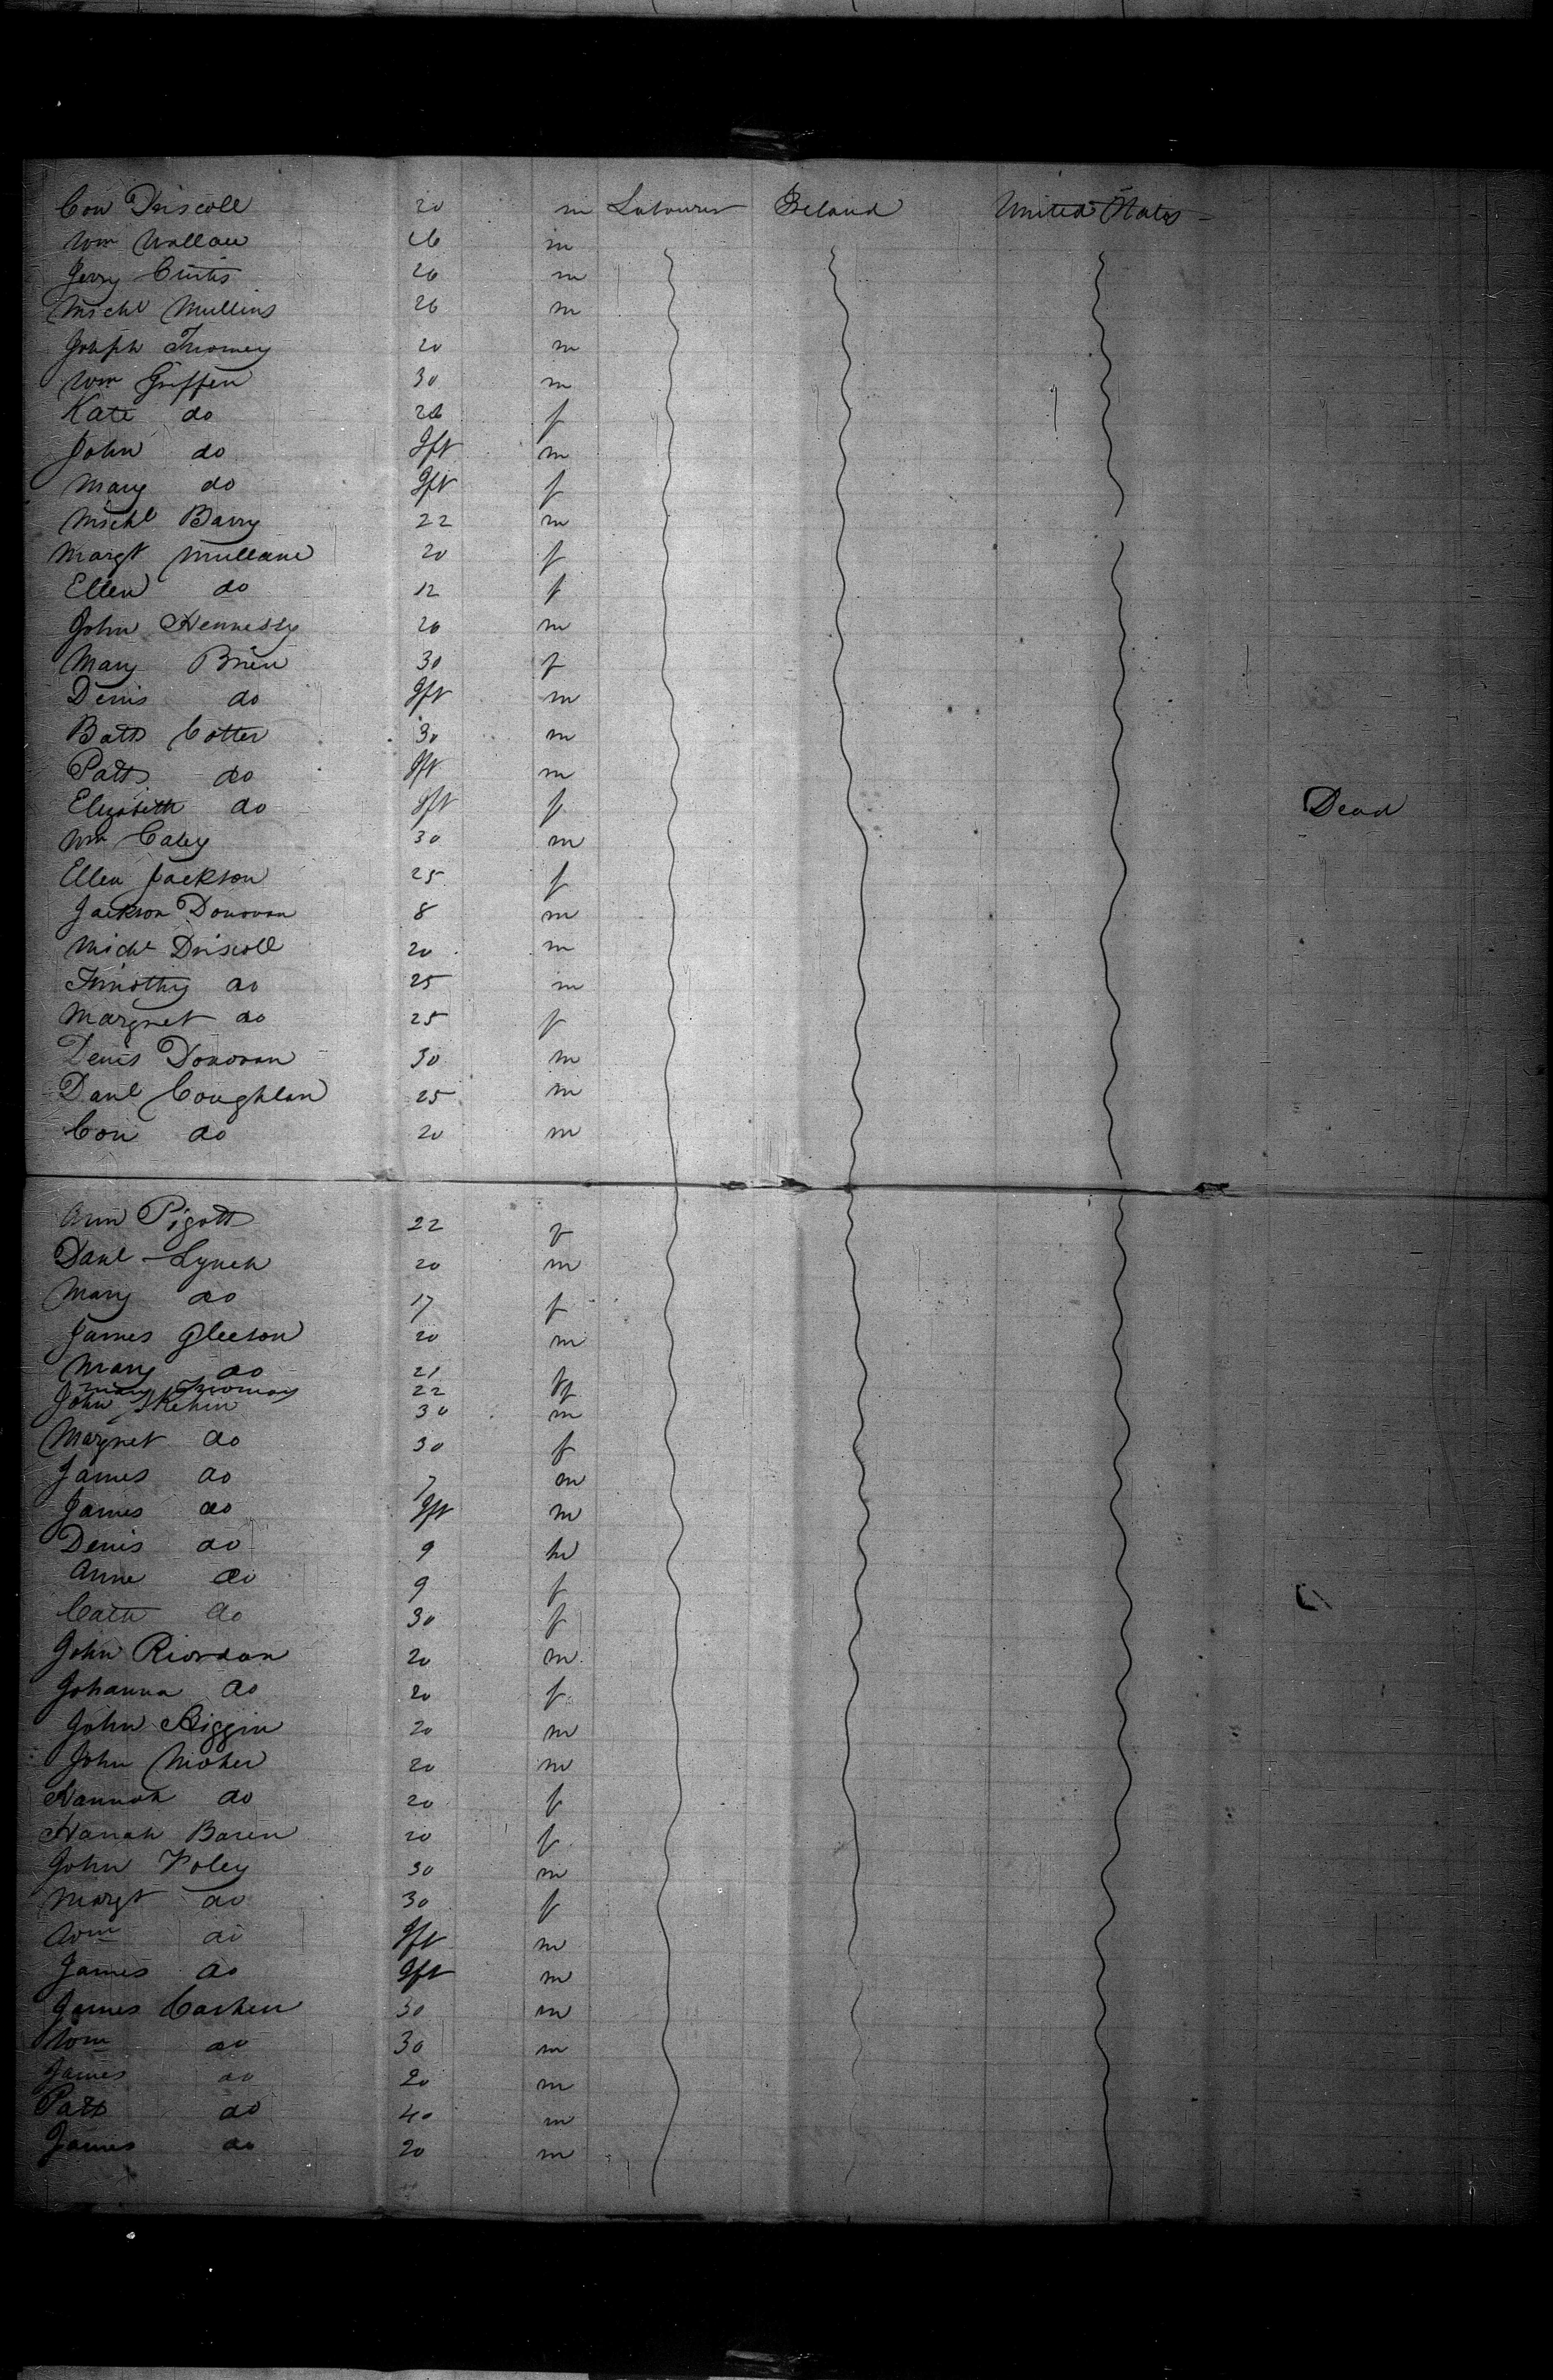 Con Driscoll 20 m Labourer Ireland United States
Wm Wallace 26 m
Jerry Curtis 26 m
Michl Mullins 26 m
Joseph Twomey 20 m
Wm Griffen 30 m
Kate do 26 f
John do Jft m
Mary do Jft f
Michl Barry 22 m
Margt Mullane 20 f
Ellen do 12 f
John Hennessy 26 m
Mary Brien 30 f
Denis do Jft m
Batt Cotter 30 m
Patt do Jft m
Elizabeth do Jft f Dead
Wm Caley 30 m
Ellen Jackson 25 f
Jackson Donovan 8 m
Michl Driscoll 20 m
Timothy do 25 m
Margret do 25 f
Denis Donovan 30 m
Danl Coughlan 25 m
Con do 20 m
Ann Pigott 22 f
Danl Lynch 20 m
Mary do 17 f
James Gleeson 20 m
Mary do 21 f
Mary Twomey 22 f
John Skehin 30 m
Margret do 30 f
James do 7 m
James do Jft m
Denis do 9 m
Anne do 9 f
Cath do 30 f
John Riordan 20 m
Johanna do 20 f
John Higgin 20 m
John Moher 20 m
Hannah do 20 f
Hanah Baren 20 f
John Foley 30 m
Margt do 30 f
Wm do Jft m
James do Jft m
James Cashen 30 m
Wm do 30 m
James do 20 m
Patt do 40 m
James do 20 m